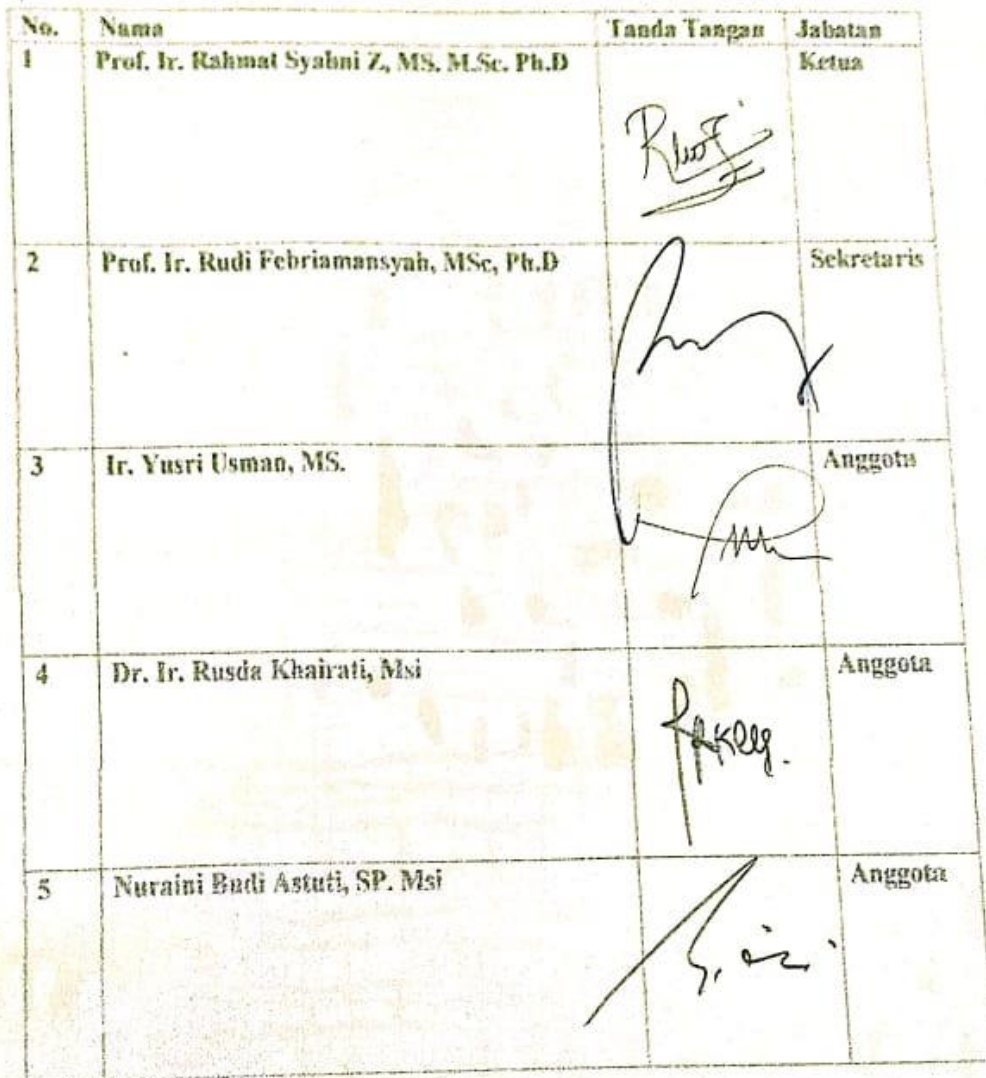 No. Nama Tanda Tangan Jabatan
1 Prof. Ir. Rahmat Syahni Z, MS. M.Sc. Ph.D Ketua
2 Prof. Ir. Rudi Febriamansyah, MSc, Ph.D Sekretaris
3 Ir. Yusri Usman, MS. Anggota
4 Dr. Ir. Rusda Khairati, Msi Anggota
5 Nuraini Budi Astuti, SP. Msi Anggota